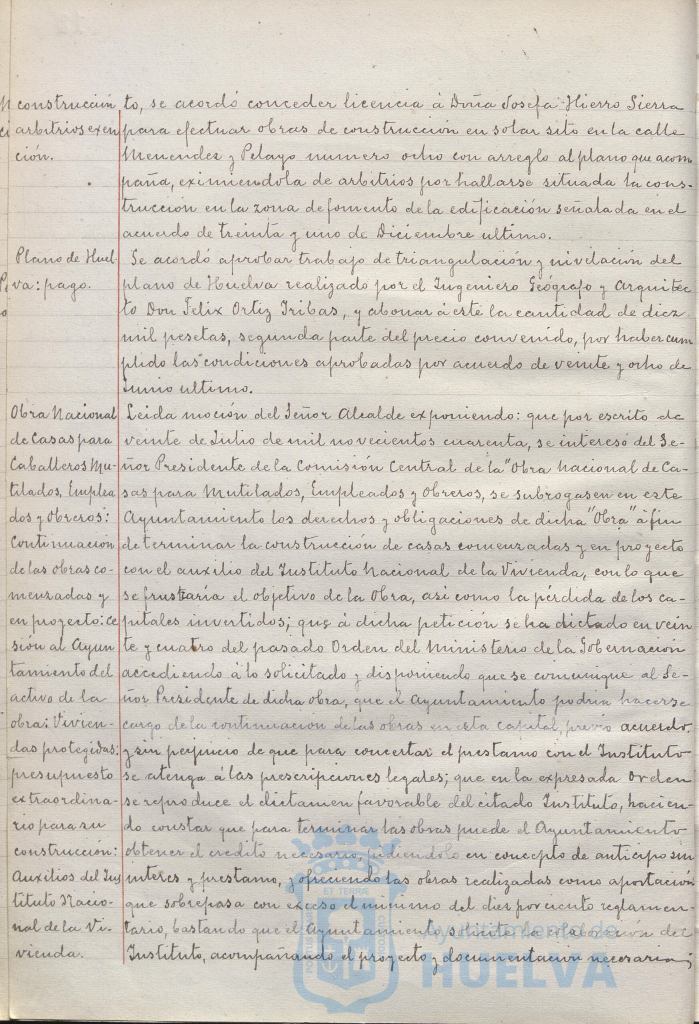 construcción
arbitrios exen
ción.
to, se acordó conceder licencia á Doña Josefa Hierro Sierra
para efectuar obras de construcción en solar sito en la calle
Menendez y Pelayo numero ocho con arreglo al plano que acom
paña, eximiendola de arbitrios por hallarse situada la cons-
trucción en la zona de fomento de la edificación señalada en el
acuerdo de treinta y uno de Diciembre ultimo.
Plano de Huel
va: pago.
Se acordó aprobar trabajo de triangulación y nivelación del
plano de Huelva realizado por el Ingeniero Geógrafo y Arquitec
to Don Felix Ortiz Iribas, y abonar á este la cantidad de diez
mil pesetas, segunda parte del precio convenido, por haber cum
plido las condiciones aprobadas por acuerdo de veinte y ocho de
Junio ultimo.
Obra Nacional
de Casas para
Caballeros Mu-
tilados, Emplea
dos y Obreros:
Continuación
de las obras co-
menzadas y
en proyecto: ce
sión al Ayun-
tamiento del
activo de la
obra: Vivien-
das protegidas:
presupuesto
extraordina-
rio para su
construcción:
Auxilios del Ins
tituto Nacio-
nal de la Vi-
vienda.
Leida moción del Señor Alcalde exponiendo: que por escrito de
veinte de Julio de mil novecientos cuarenta, se interesó del Se-
ñor Presidente de la Comisión Central de la "Obra Nacional de Ca-
sas para Mutilados, Empleados y Obreros, se subrogasen en este
Ayuntamiento los derechos y obligaciones de dicha "Obra" á fin
de terminar la construcción de casas comenzadas y en proyecto
con el auxilio del Instituto Nacional de la Vivienda, con lo que
se frustraría el objetivo de la Obra, asi como la pérdida de los ca-
pitales invertidos; que á dicha petición se ha dictado en vein
te y cuatro del pasado Orden del Ministerio de la Gobernación
accediendo á lo solicitado y disponiendo que se comunique al Se-
ñor Presidente de dicha obra, que el Ayuntamiento podria hacerse
cargo de la continuación de las obras en esta capital, previo acuerdo,
y sin perjuicio de que para concertar el prestamo con el Instituto
se atenga á las prescripciones legales; que en la expresada Orden
se reproduce el dictamen favorable del citado Instituto, hacien-
do constar que para terminar las obras puede el Ayuntamiento
obtener el credito necesario, pidiendolo en concepto de anticipo sin
interes y prestamo, y ofreciendo las obras realizadas como aportación
que sobrepasa con exceso el minimo del diez por ciento reglamen-
tario, bastando que el Ayuntamiento solicite la colaboración del
Instituto, acompañando el proyecto y documentación necesaria;
Ayuntamiento de
HUELVA